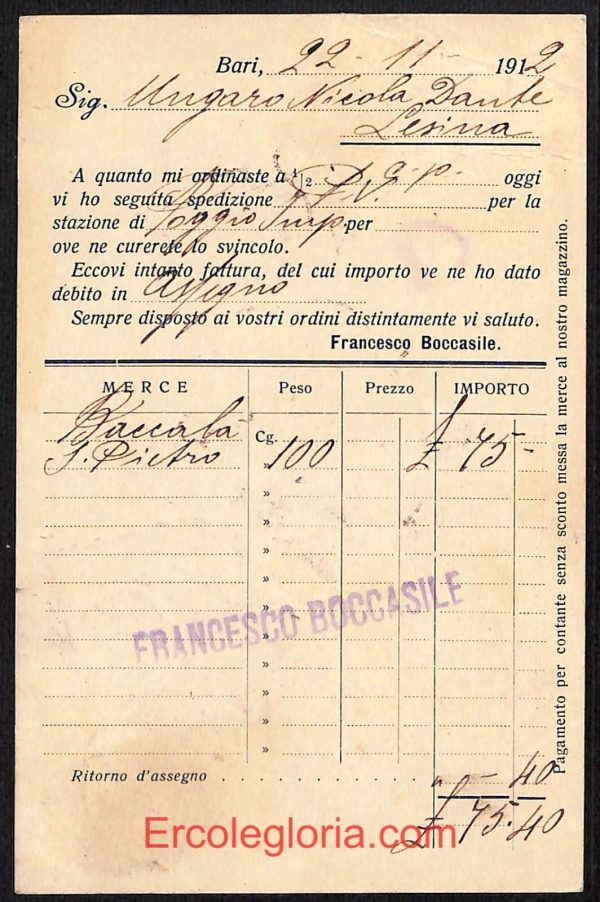 Bari, 22-11-1912
Sig. Ungaro Nicola Dante
Lesina
A quanto mi ordinaste a ½ p. oggi
vi ho seguita spedizione per la
stazione di Poggio Imp. per
ove ne curerete lo svincolo.
Eccovi intanto fattura, del cui importo ve ne ho dato
debito in Assegno
Sempre disposto ai vostri ordini distintamente vi saluto.
Francesco Boccasile.
MERCE Peso Prezzo IMPORTO
Baccalà
S. Pietro Cg. » 100 £ 75 -
»
»
»
»
»
»
»
»
»
»
FRANCESCO BOCCASILE
Ritorno d'assegno . . . . . . . . . . . . " - 40
£ 75.40
Pagamento per contante senza sconto messa la merce al nostro magazzino.
Ercolegloria.com